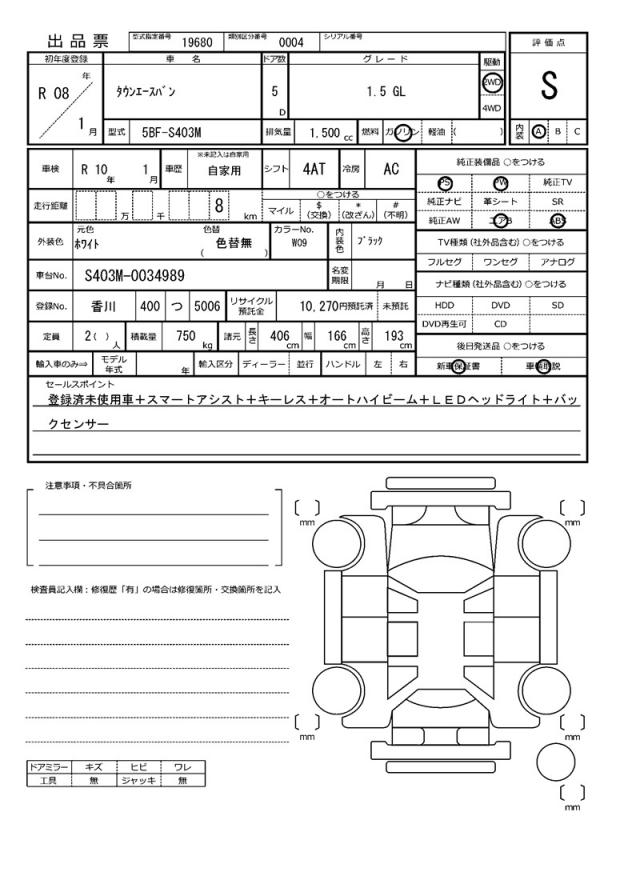 出品票 型式指定番号 19680 類別区分番号 0004 シリアル番号
評価点
初年度登録 車名 ドア数 グレード 駆動
R 08 年 1 月 タウンエースバン 5 D 1.5 GL 2WD 4WD S
型式 5BF-S403M 排気量 1.500 cc 燃料 ガソリン 軽油 ( ) 内装 A B C
車検 R 10 年 1 月 車歴 ※未記入は自家用 自家用 シフト 4AT 冷房 AC
純正装備品 ○をつける
PS PW 純正TV
純正ナビ 革シート SR
純正AW エアB ABS
走行距離 万 千 8 km ○をつける
マイル $(交換) *(改ざん) #(不明)
外装色 元色 ホワイト 色替 色替無 ( ) カラーNo. W09 内装色 ブラック
TV種類 (社外品含む) ○をつける
フルセグ ワンセグ アナログ
車台No. S403M-0034989 名変期限 月 日
ナビ種類 (社外品含む) ○をつける
HDD DVD SD
DVD再生可 CD
登録No. 香川 400 つ 5006 リサイクル預託金 10,270円預託済 未預託
定員 2( ) 人 積載量 750 kg 諸元 長さ 406 cm 幅 166 cm 高さ 193 cm
後日発送品 ○をつける
新車保証書 車輌取説
輸入車のみ⇒ モデル年式 年 輸入区分 ディーラー 並行 ハンドル 左 右
セールスポイント
登録済未使用車+スマートアシスト+キーレス+オートハイビーム+LEDヘッドライト+バッ
クセンサー
注意事項・不具合箇所
検査員記入欄:修復歴「有」の場合は修復箇所・交換箇所を記入
mm
mm
mm
mm
mm
ドアミラー キズ ヒビ ワレ
工具 無 ジャッキ 無